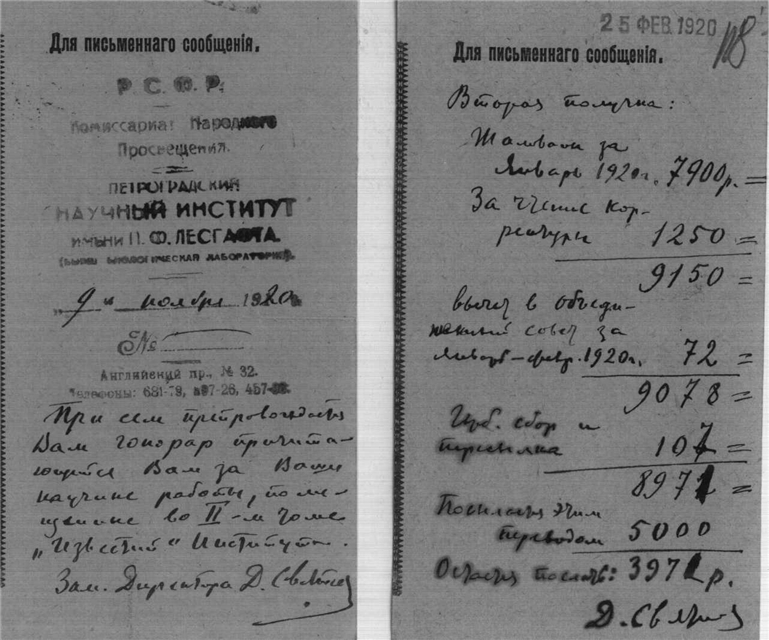 Для письменнаго сообщенія.
Р. С. Ф. Р.
Комиссариат Народного
Просвещения.
ПЕТРОГРАДСКИЙ
НАУЧНЫЙ ИНСТИТУТ
ИМЕНИ П. Ф. ЛЕСГАФТА.
(БЫВШ. БИОЛОГИЧЕСКАЯ ЛАБОРАТОРИЯ).
„9“ ноября 1920г.
№
Английский пр., № 32.
Телефоны: 681-79,
При сем препровождается
Вам гонорар причита-
ющийся Вам за Ваши
научные работы, поме-
щенные во II-м томе
„Известий“ Института.
Зам. Директора Д.
25 ФЕВ. 1920
Для письменнаго сообщенія.
Вторая получка:
Жалованье за
Январь 1920г. 7900р. =
За чтение кор-
ректуры 1250 =
9150 =
вычет в объеди-
ненный совет за
январь–февр. 1920г. 72 =
9078 =
сбор и
пересылка 107 =
8971 =
Посылается этим
переводом 5000
Остается послать: 3971 р.
Д.